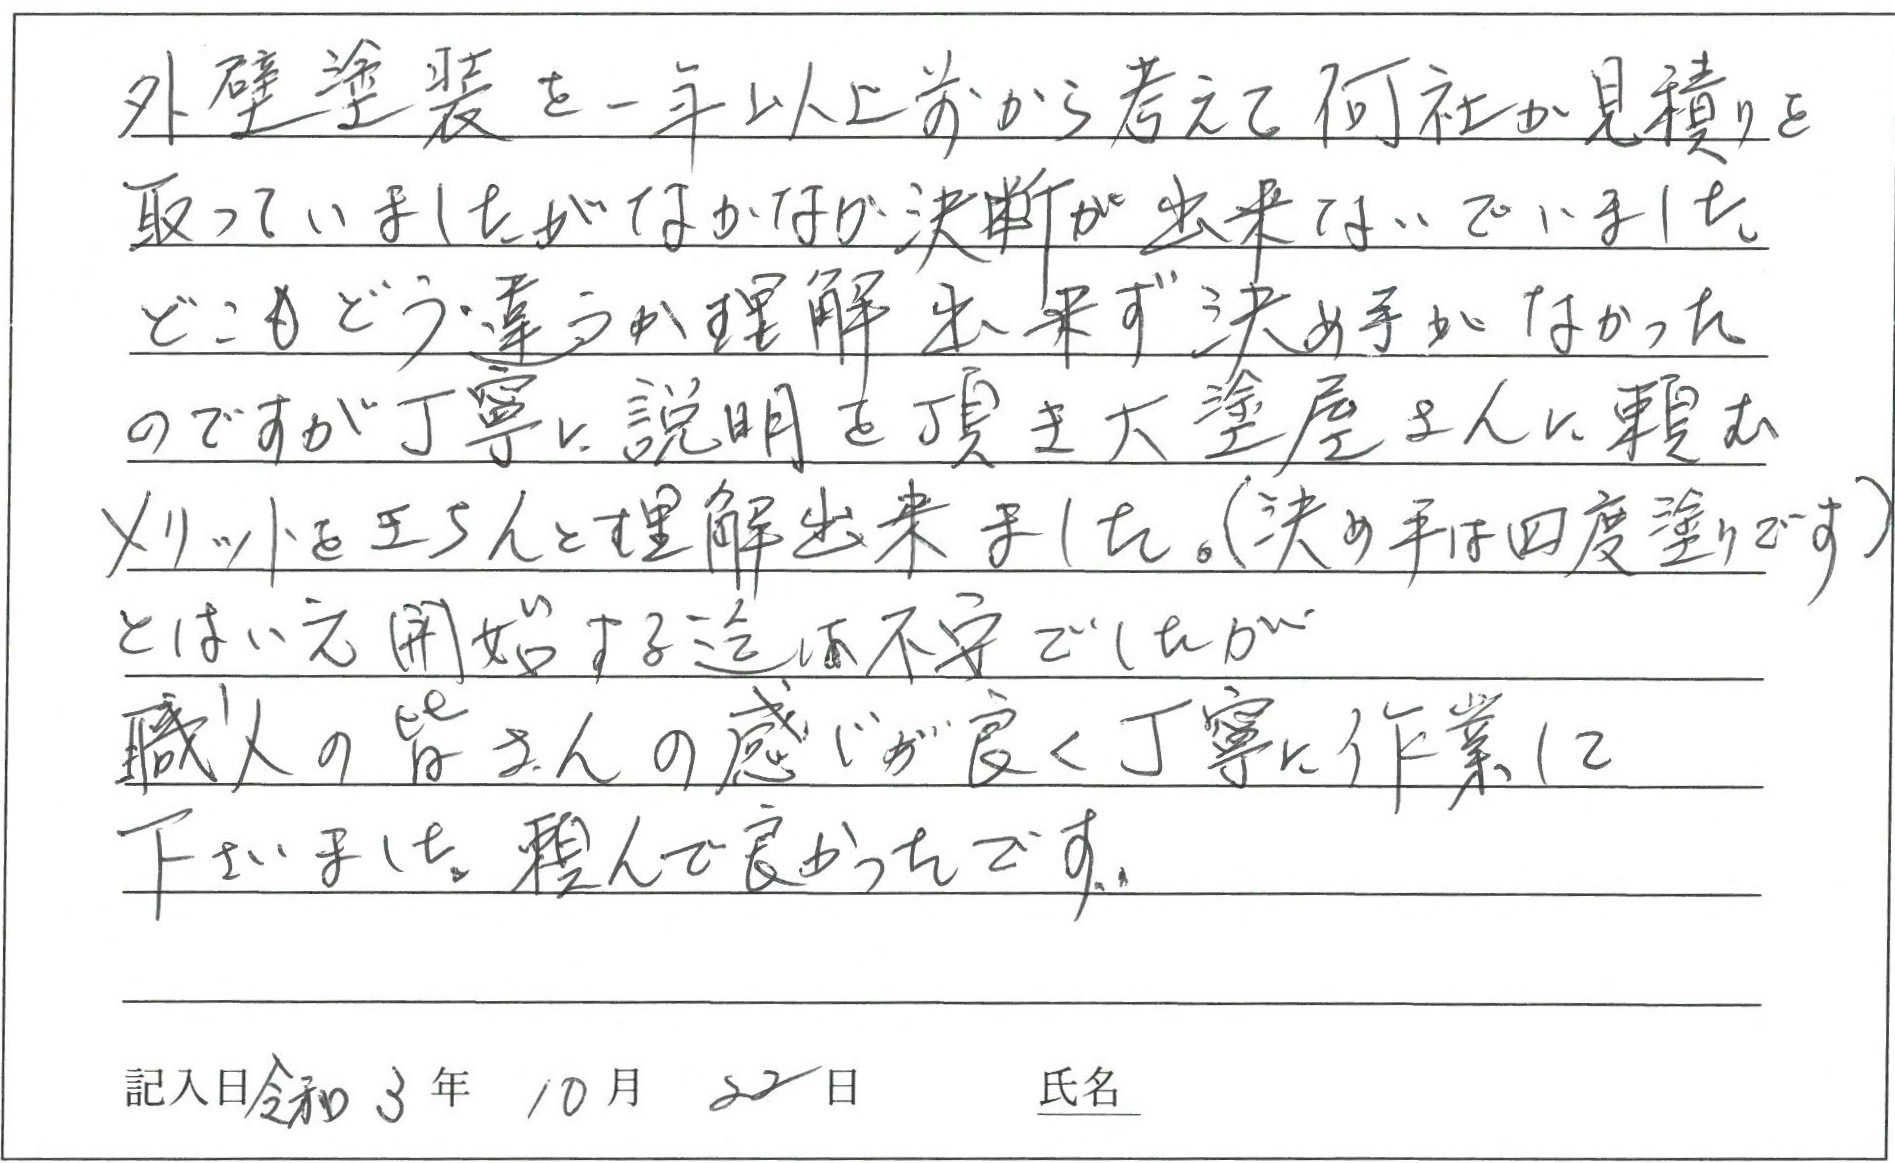 外壁塗装を一年以上前から考えて何社か見積りを
取っていましたがなかなか決断が出来ないでいました。
どこもどう違うか理解出来ず決め手がなかった
のですが丁寧に説明を頂き大塗屋さんに頼む
メリットをきちんと理解出来ました。(決め手は四度塗りです)
とはいえ開始する迄は不安でしたが
職人の皆さんの感じが良く丁寧に作業して
下さいました。頼んで良かったです。
記入日令和3年 10月 22日 氏名